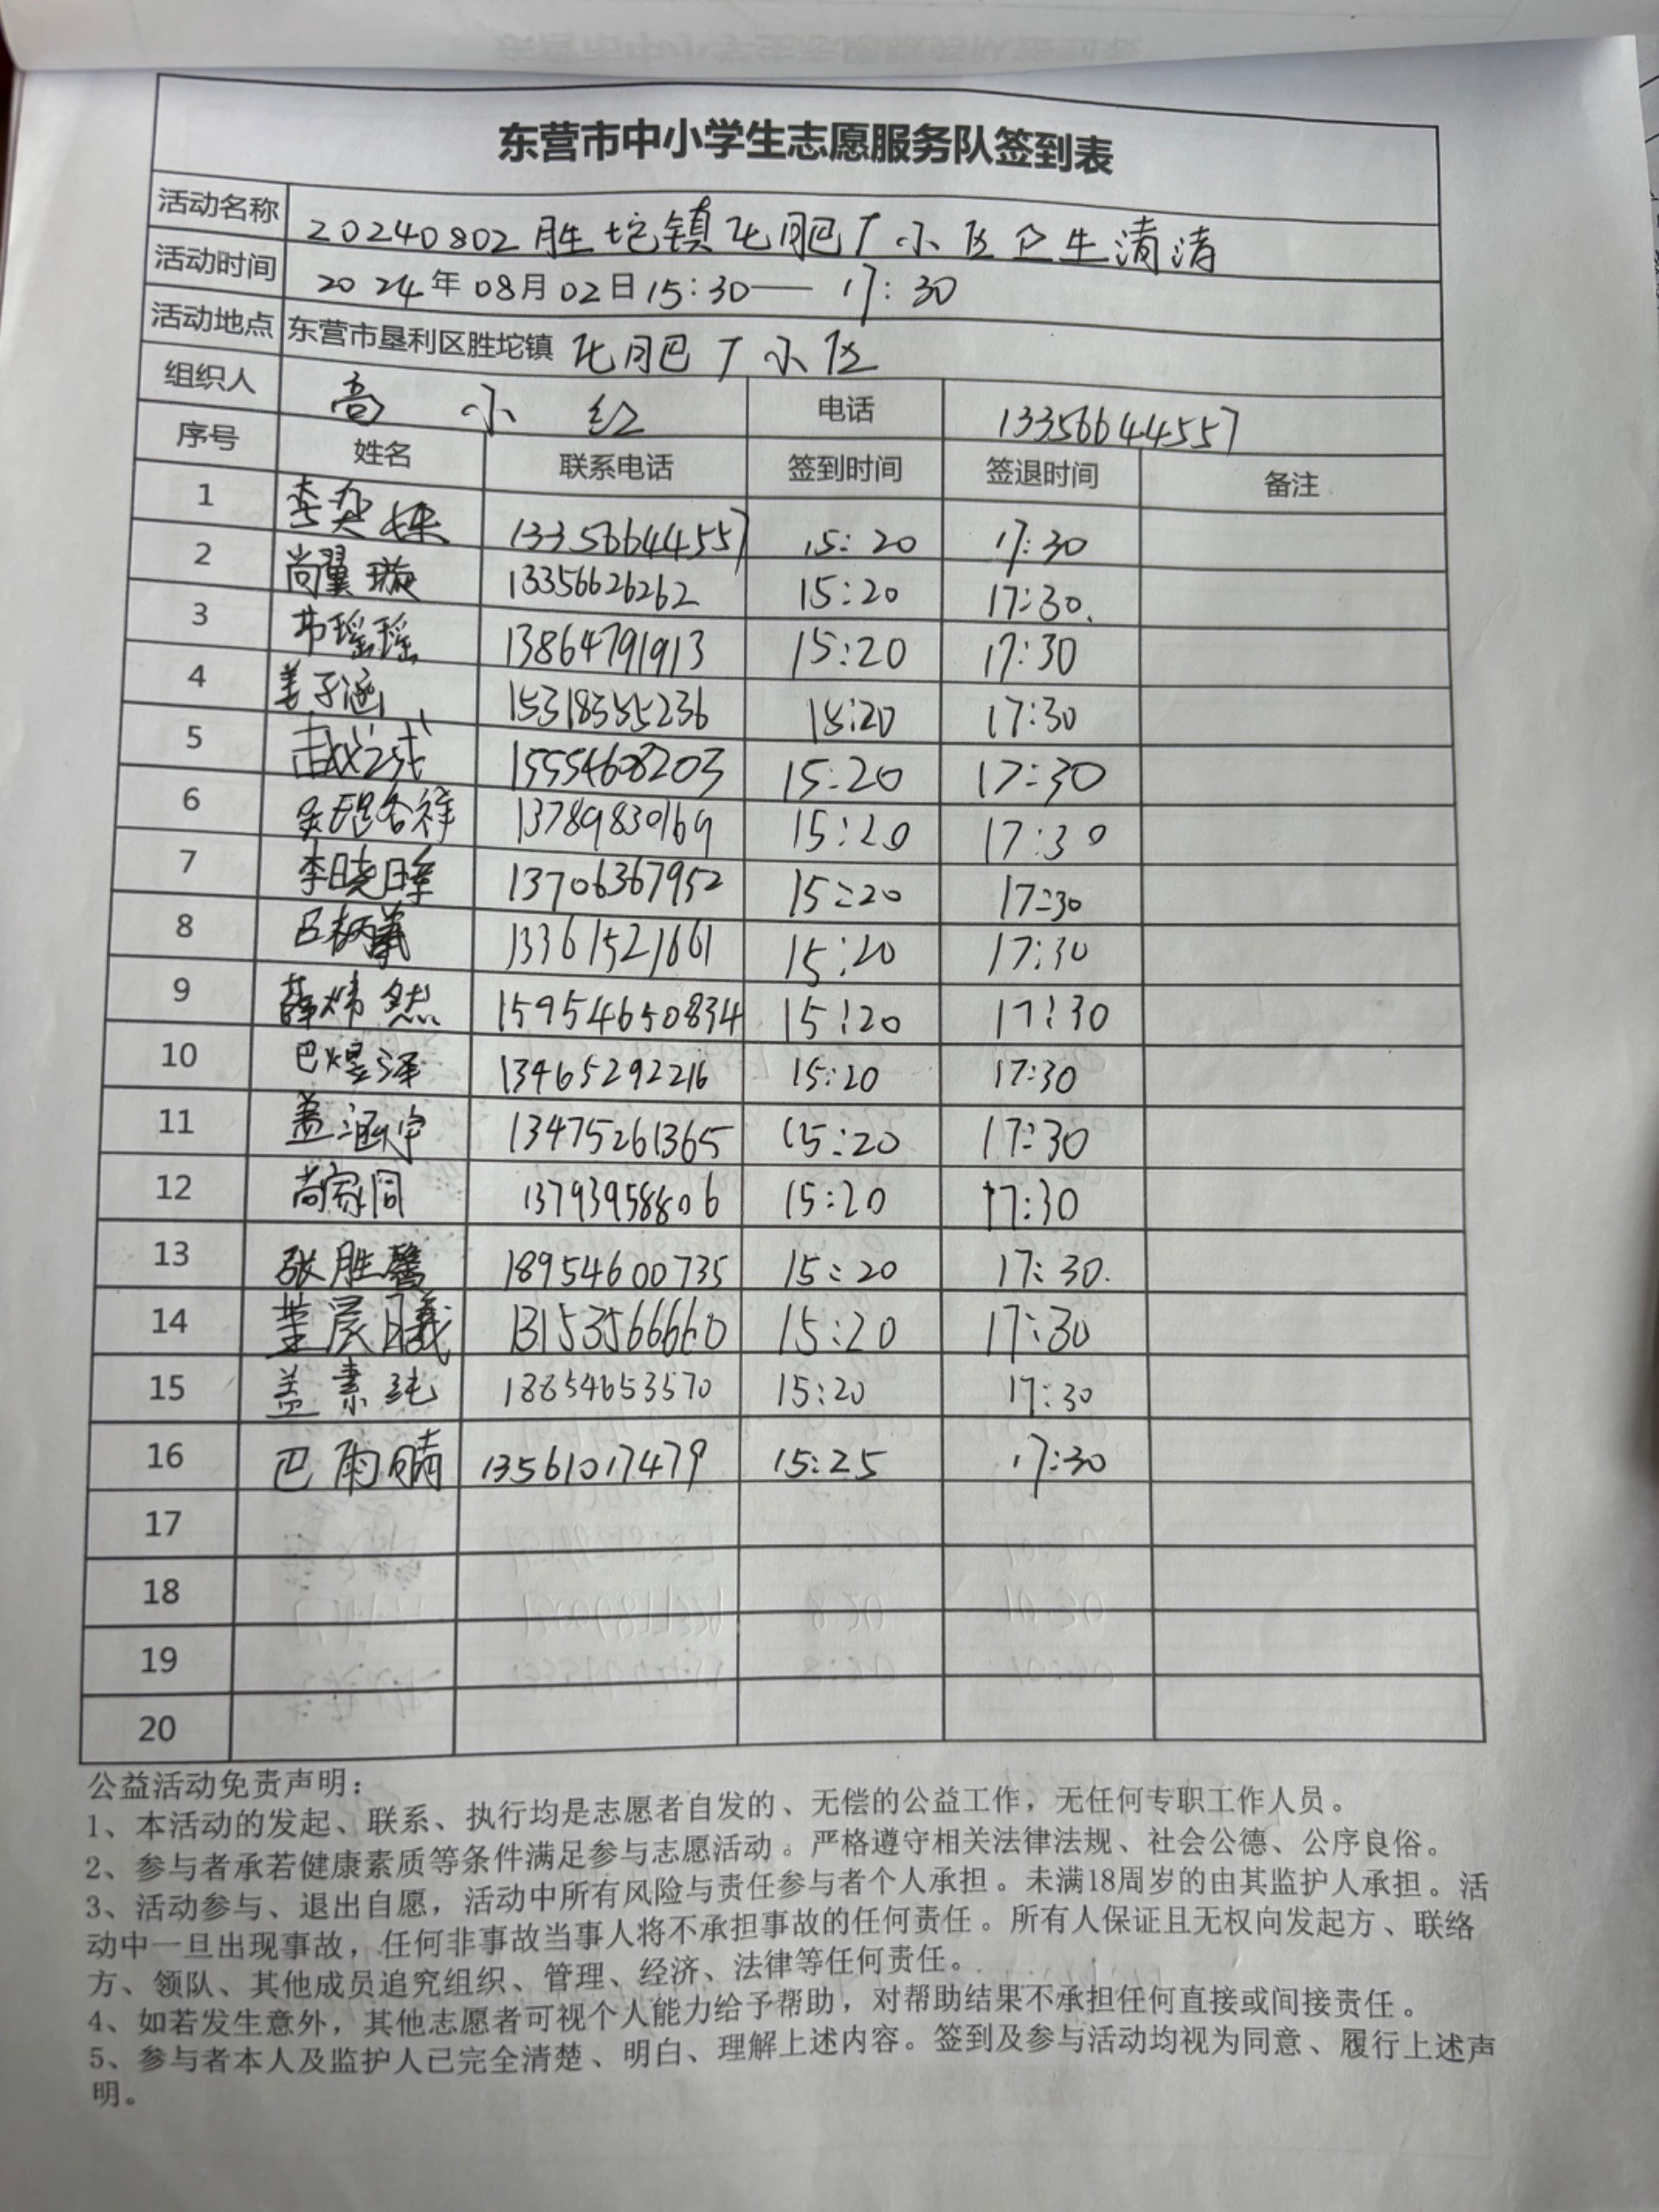 东营市中小学生志愿服务队签到表
活动名称 20240802胜坨镇化肥厂小区卫生清洁
活动时间 2024年08月02日15:30——17:30
活动地点 东营市垦利区胜坨镇 化肥厂小区
组织人 高小红 电话 13356644557
序号 姓名 联系电话 签到时间 签退时间 备注
1 李奕 13356644557 15:20 17:30
2 尚翼璇 13356626262 15:20 17:30.
3 瑶瑶 13864791913 15:20 17:30
4 姜子涵 15318555236 15:20 17:30
5 赵 15554608203 15:20 17:30
6 13789830169 15:20 17:30
7 李晓晖 13706367952 15:20 17:30
8 吕 13361521661 15:20 17:30
9 薛炜然 15954650834 15:20 17:30
10 巴煜泽 13465292216 15:20 17:30
11 盖涵宇 13475261365 15:20 17:30
12 尚家同 13793958806 15:20 17:30
13 张胜馨 18954600735 15:20 17:30.
14 董晨曦 13153566660 15:20 17:30
15 盖素纯 18654653570 15:20 17:30
16 巴雨晴 13561017479 15:25 17:30
17
18
19
20
公益活动免责声明：
1、本活动的发起、联系、执行均是志愿者自发的、无偿的公益工作，无任何专职工作人员。
2、参与者承若健康素质等条件满足参与志愿活动。严格遵守相关法律法规、社会公德、公序良俗。
3、活动参与、退出自愿，活动中所有风险与责任参与者个人承担。未满18周岁的由其监护人承担。活
动中一旦出现事故，任何非事故当事人将不承担事故的任何责任。所有人保证且无权向发起方、联络
方、领队、其他成员追究组织、管理、经济、法律等任何责任。
4、如若发生意外，其他志愿者可视个人能力给予帮助，对帮助结果不承担任何直接或间接责任。
5、参与者本人及监护人已完全清楚、明白、理解上述内容。签到及参与活动均视为同意、履行上述声
明。